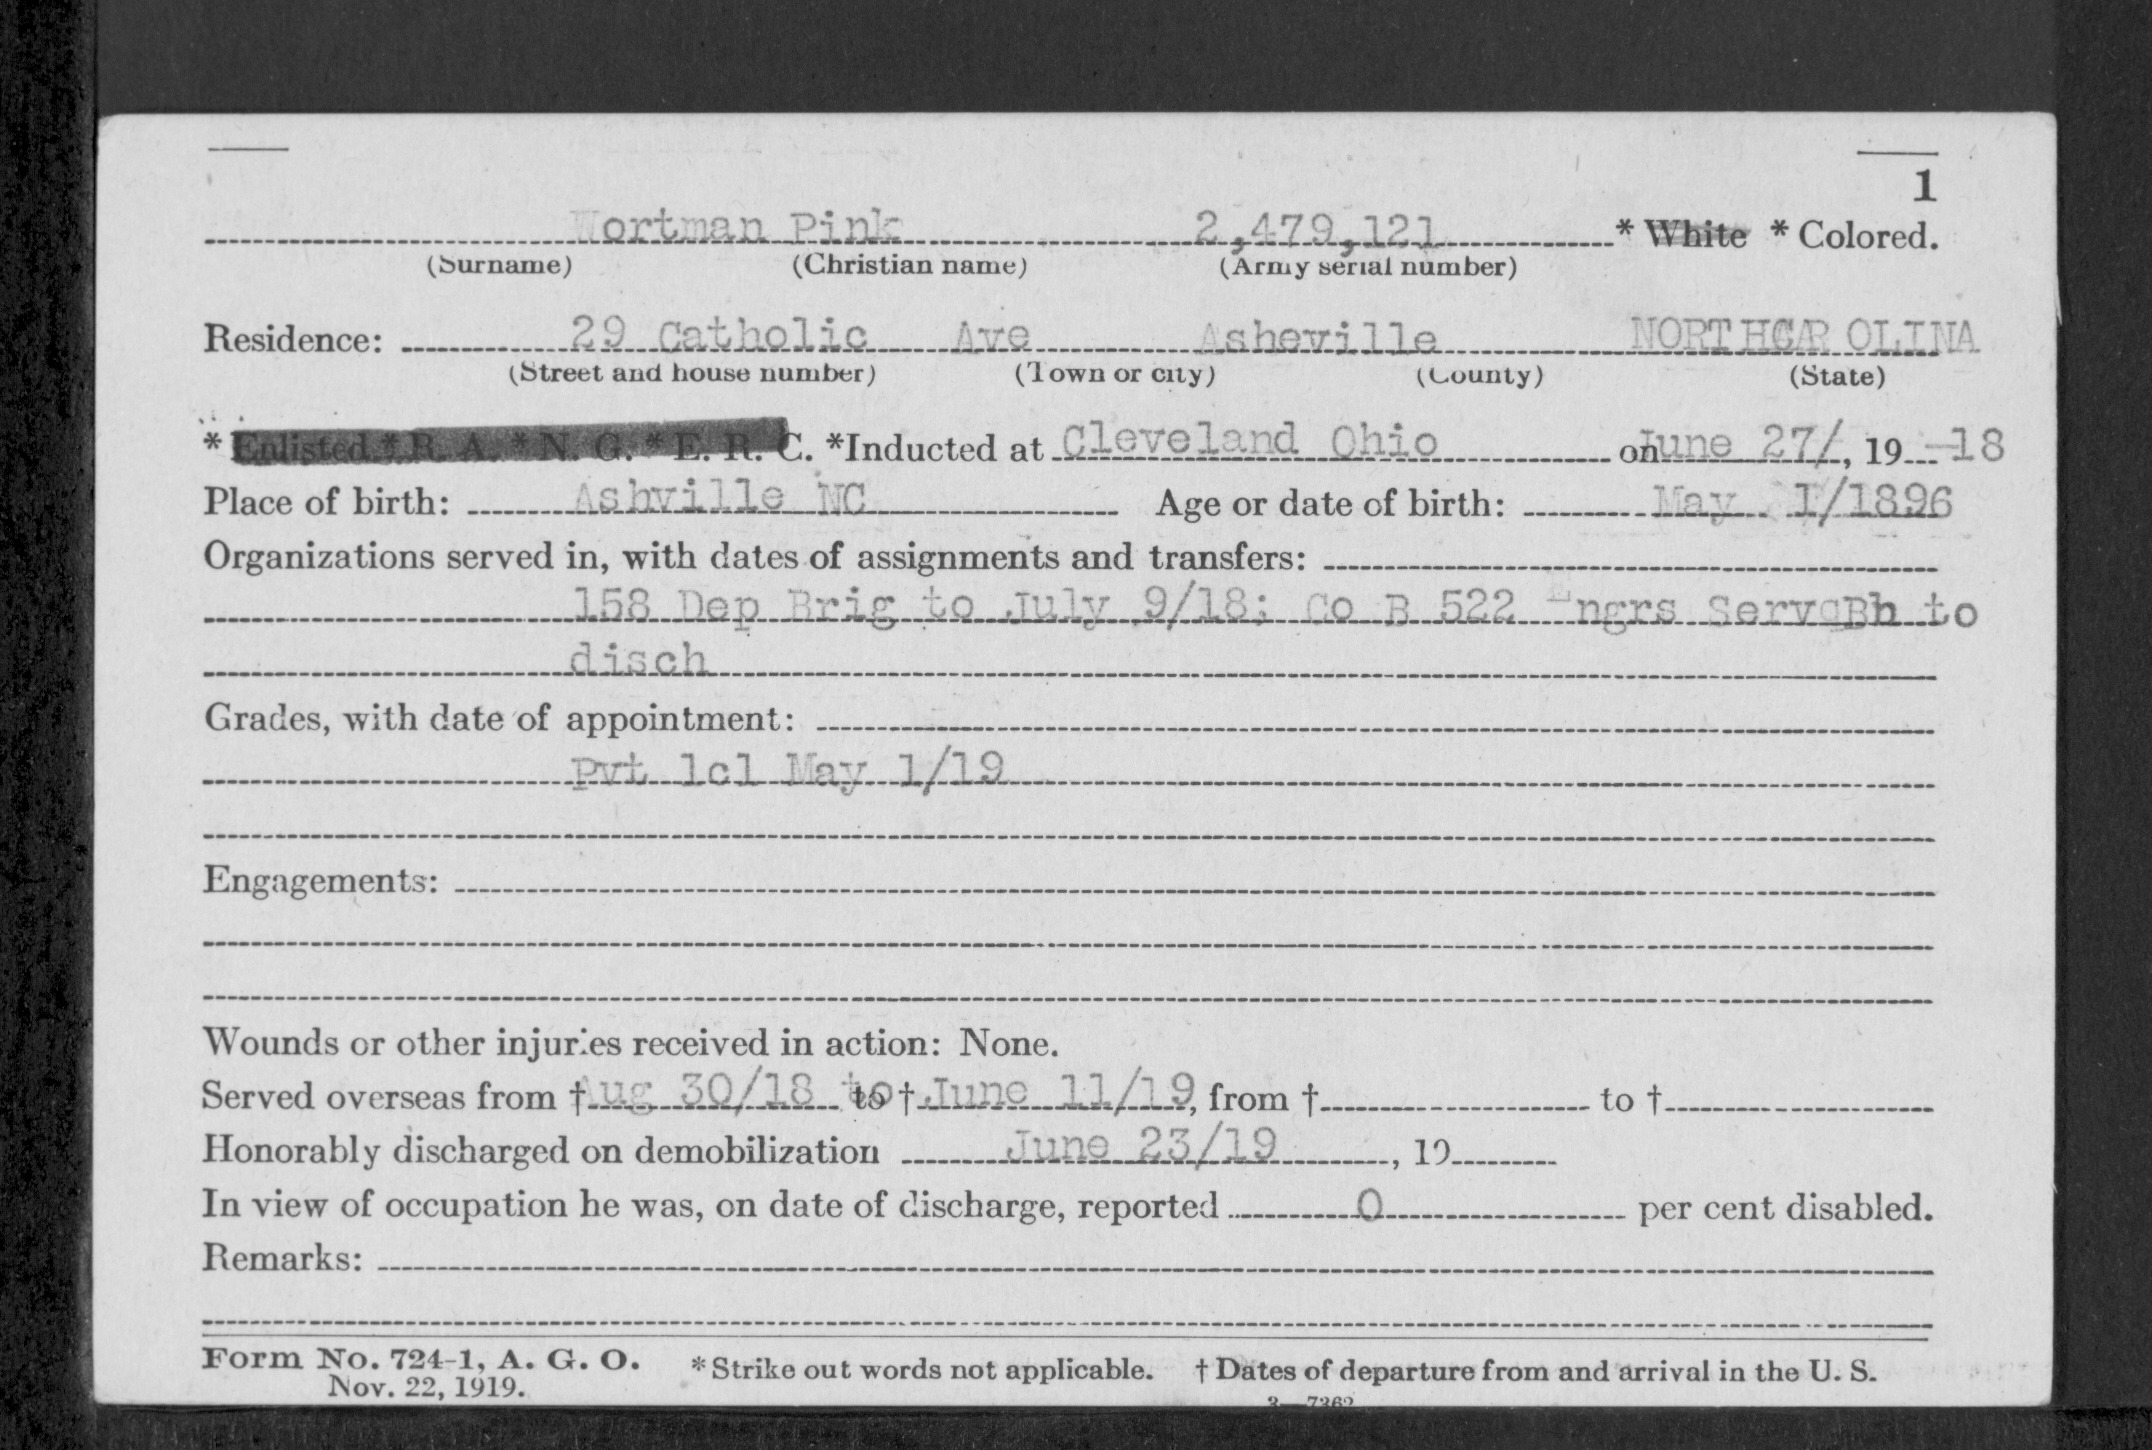 1
Wortman Pink 2,479,121 * White * Colored.
(Surname) (Christian name) (Army serial number)
Residence: 29 Catholic Ave Asheville NORTHCAROLINA
(Street and house number) (Town or city) (County) (State)
* Enlisted * R. A. * N. G. * E. R. C. *Inducted at Cleveland Ohio on June 27/, 19 -18
Place of birth: Ashville NC Age or date of birth: May 1/1896
Organizations served in, with dates of assignments and transfers:
158 Dep Brig to July 9/18; Co B 522 Engrs Serv Bn to
disch
Grades, with date of appointment:
Pvt 1cl May 1/19
Engagements:
Wounds or other injuries received in action: None.
Served overseas from † Aug 30/18 to † June 11/19, from † to †
Honorably discharged on demobilization June 23/19, 19
In view of occupation he was, on date of discharge, reported 0 per cent disabled.
Remarks:
Form No. 724-1, A. G. O. * Strike out words not applicable. † Dates of departure from and arrival in the U. S.
Nov. 22, 1919.
3—7362